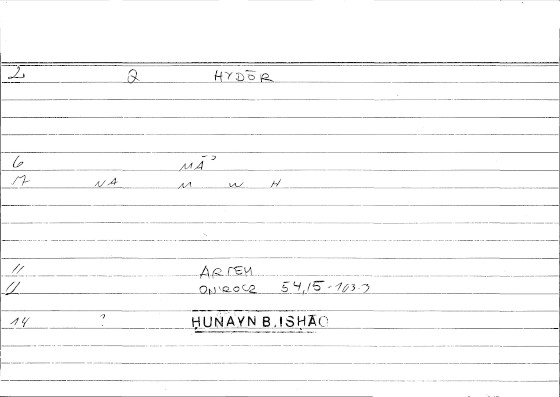 2 Q HYDŌR
6 MĀʾ
17 NA M W H
11 ARTEM
11 ONIROCR 54,15 - 103.3
14 ? ḤUNAYN B.ISḤĀQ